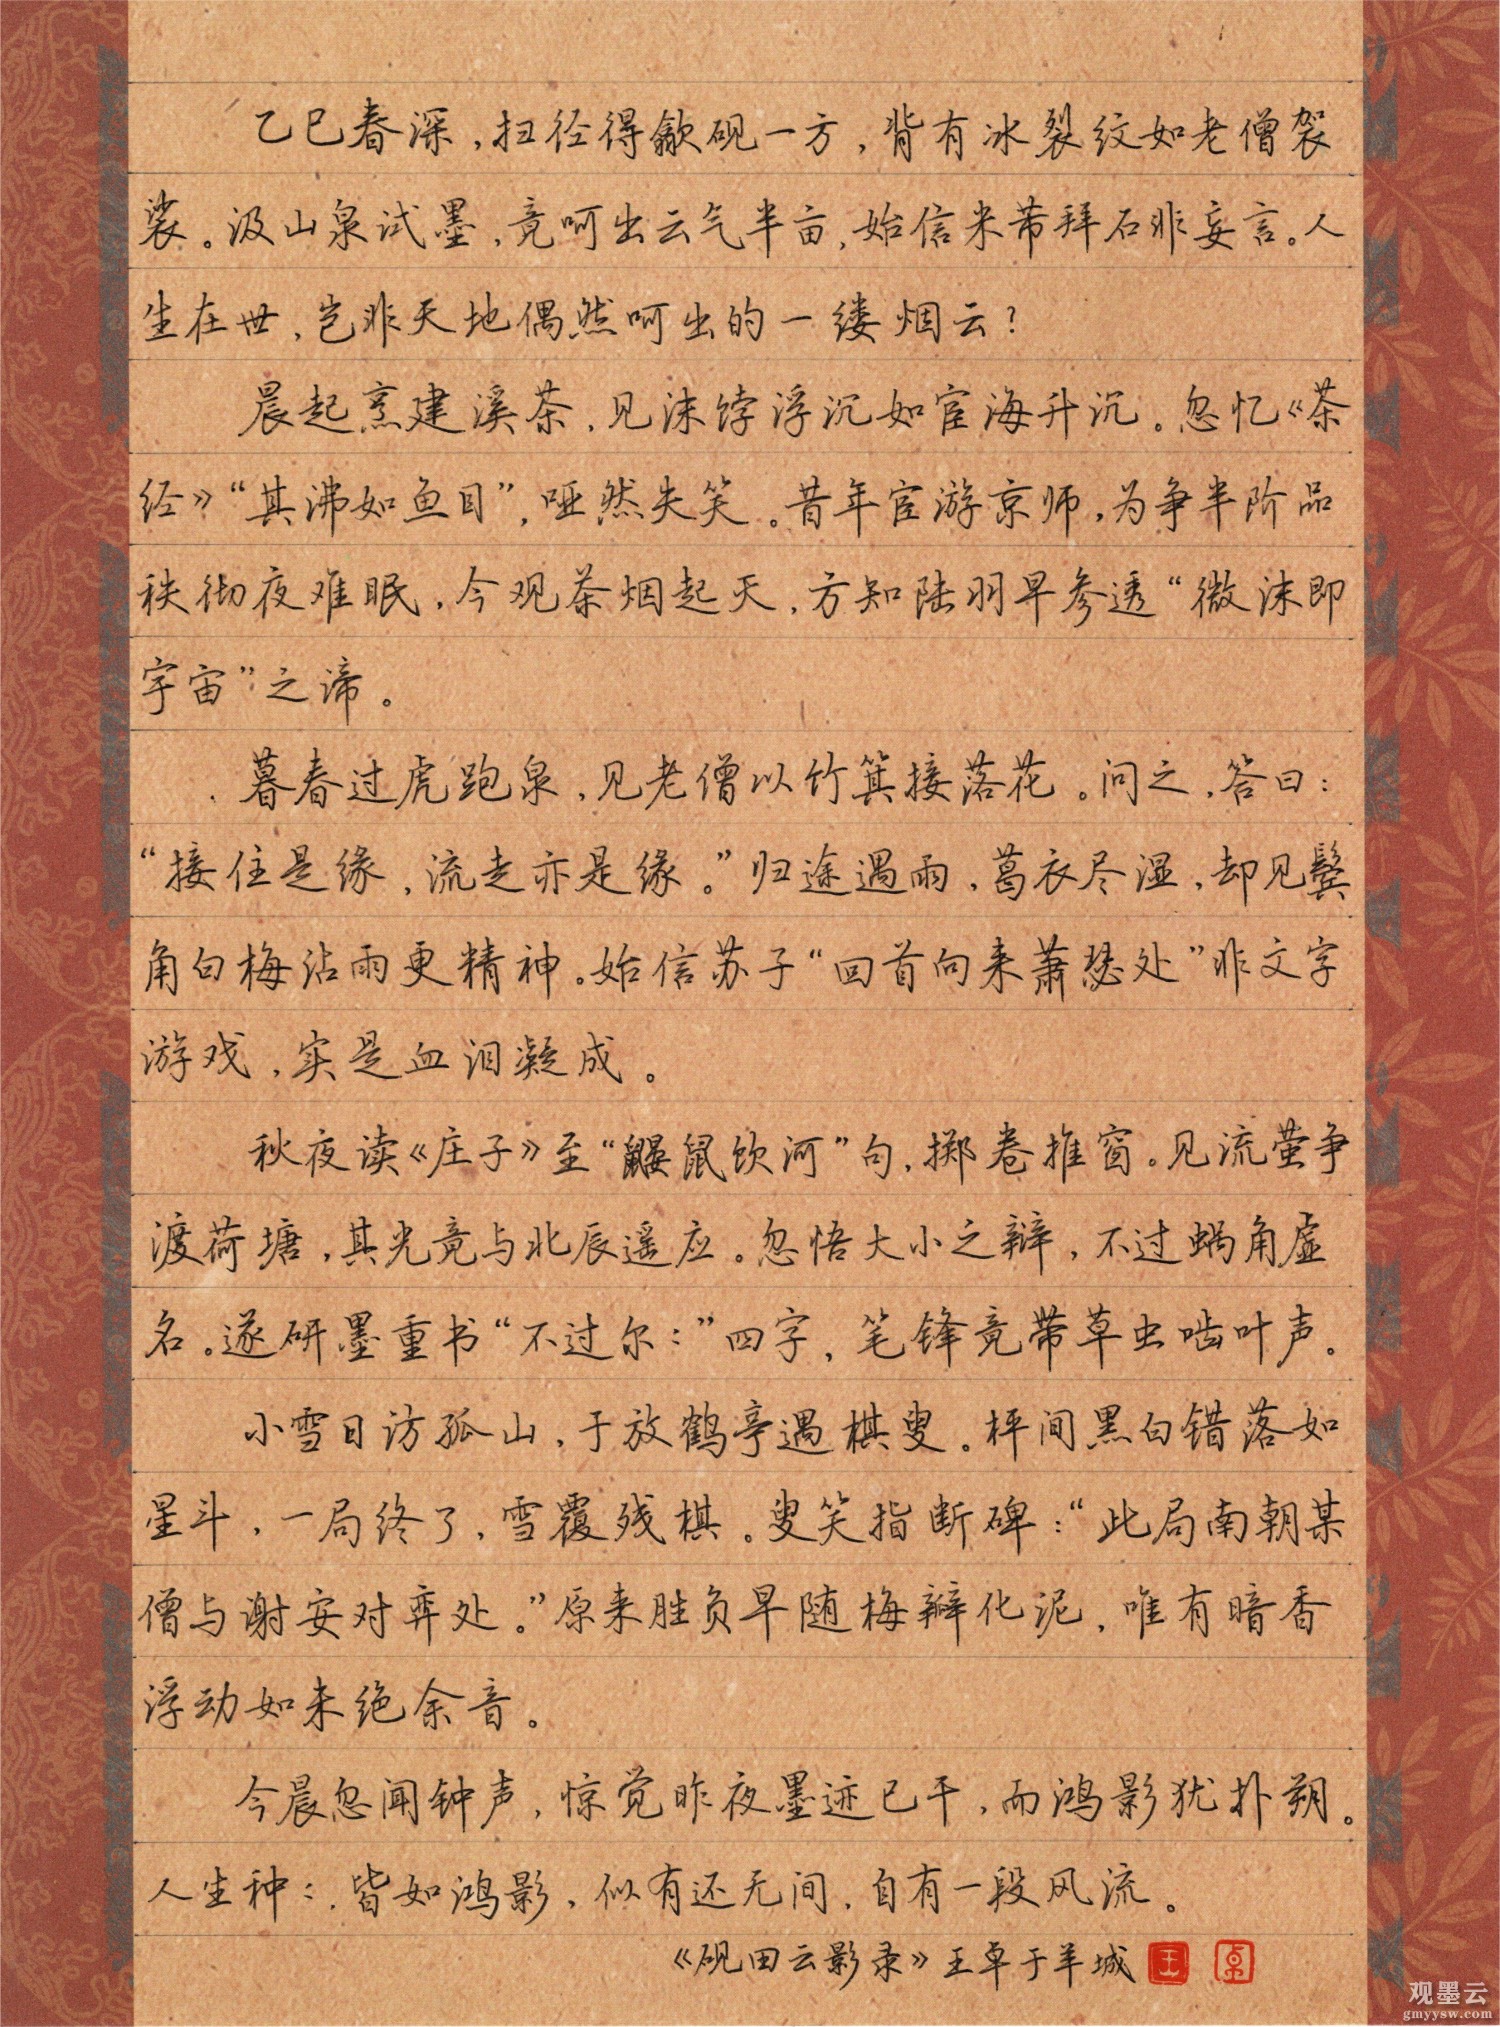 乙巳春深，扫径得歙砚一方，背有冰裂纹如老僧袈
裟。汲山泉试墨，竟呵出云气半亩，始信米芾拜石非妄言。人
生在世，岂非天地偶然呵出的一缕烟云？
晨起烹建溪茶，见沫饽浮沉如宦海升沉。忽忆《茶
经》“其沸如鱼目”，哑然失笑。昔年宦游京师，为争半阶品
秩彻夜难眠，今观茶烟起灭，方知陆羽早参透“微沫即
宇宙”之谛。
暮春过虎跑泉，见老僧以竹箕接落花。问之，答曰：
“接住是缘，流走亦是缘。”归途遇雨，葛衣尽湿，却见鬓
角白梅沾雨更精神。始信苏子“回首向来萧瑟处”非文字
游戏，实是血泪凝成。
秋夜读《庄子》至“鼹鼠饮河”句，掷卷推窗。见流萤争
渡荷塘，其光竟与北辰遥应。忽悟大小之辩，不过蜗角虚
名。遂研墨重书“不过尔：”四字，笔锋竟带草虫啮叶声。
小雪日访孤山，于放鹤亭遇棋叟。枰间黑白错落如
星斗，一局终了，雪覆残棋。叟笑指断碑：“此局南朝某
僧与谢安对弈处。”原来胜负早随梅瓣化泥，唯有暗香
浮动如未绝余音。
今晨忽闻钟声，惊觉昨夜墨迹已干，而鸿影犹扑朔。
人生种：，皆如鸿影，似有还无间，自有一段风流。
《砚田云影录》王卓于羊城 王 卓
观墨云
gmyysw.com